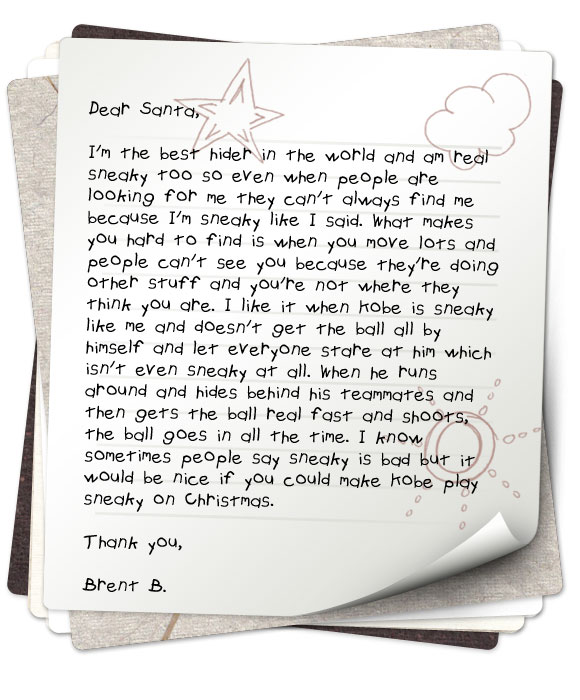 Dear Santa,
I'm the best hider in the world and am real
sneaky too so even when people are
looking for me they can't always find me
because I'm sneaky like I said. What makes
you hard to find is when you move lots and
people can't see you because they're doing
other stuff and you're not where they
think you are. I like it when Kobe is sneaky
like me and doesn't get the ball all by
himself and let everyone stare at him which
isn't even sneaky at all. When he runs
around and hides behind his teammates and
then gets the ball real fast and shoots,
the ball goes in all the time. I know
sometimes people say sneaky is bad but it
would be nice if you could make Kobe play
sneaky on Christmas.
Thank you,
Brent B.